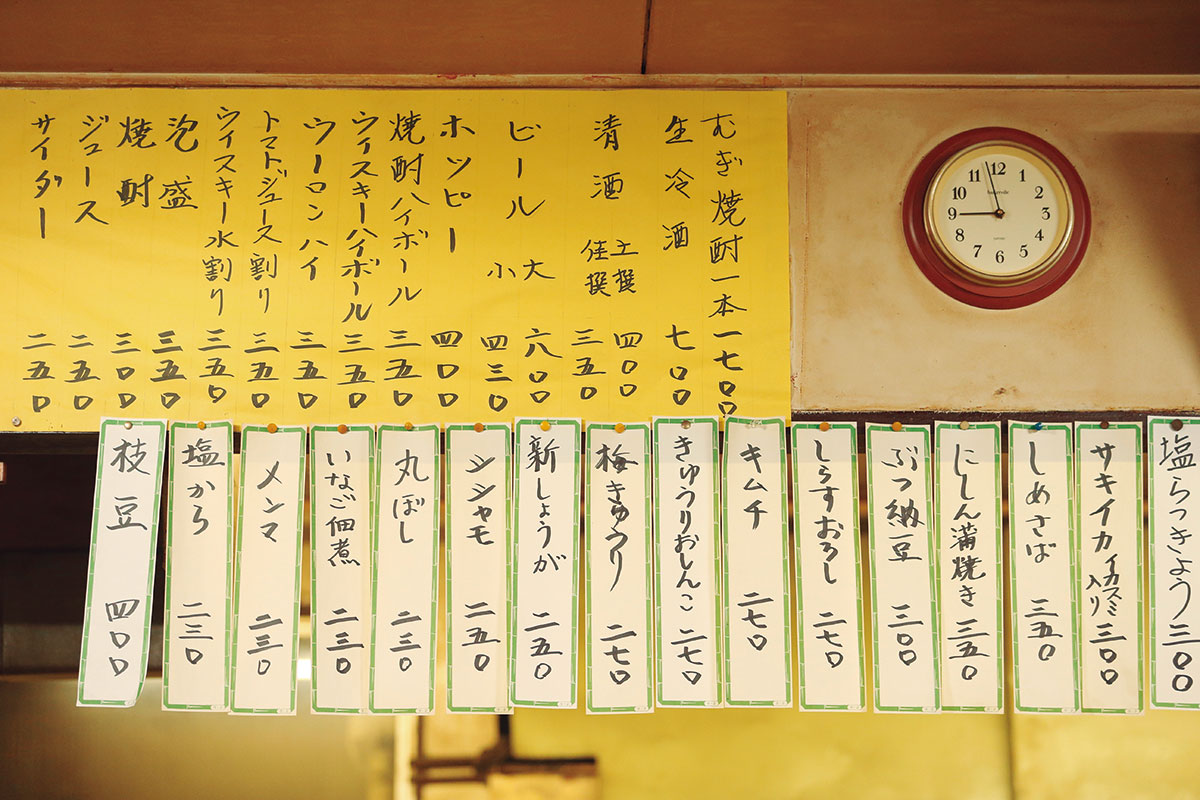 むぎ焼酎一本 一七〇〇
生冷酒 七〇〇
清酒 上撰 四〇〇
佳撰 三五〇
ビール 大 六〇〇
小 四三〇
ホッピー 四〇〇
焼酎ハイボール 三五〇
ウイスキーハイボール 三五〇
ウーロンハイ 三五〇
トマトジュース割り 三五〇
ウイスキー水割り 三五〇
泡盛 三五〇
焼酎 三〇〇
ジュース 二五〇
サイダー 二五〇
12
1
2
3
4
5
6
7
8
9
10
11
塩らっきょう 三〇〇
サキイカ イカスミ入り 三〇〇
しめさば 三五〇
にしん蒲焼き 三五〇
ぶつ納豆 三〇〇
しらすおろし 二七〇
キムチ 二七〇
きゅうりおしんこ 二七〇
梅きゅうり 二七〇
新しょうが 二五〇
シシャモ 二五〇
丸ぼし 二三〇
いなご佃煮 二三〇
メンマ 二三〇
塩から 二三〇
枝豆 四〇〇